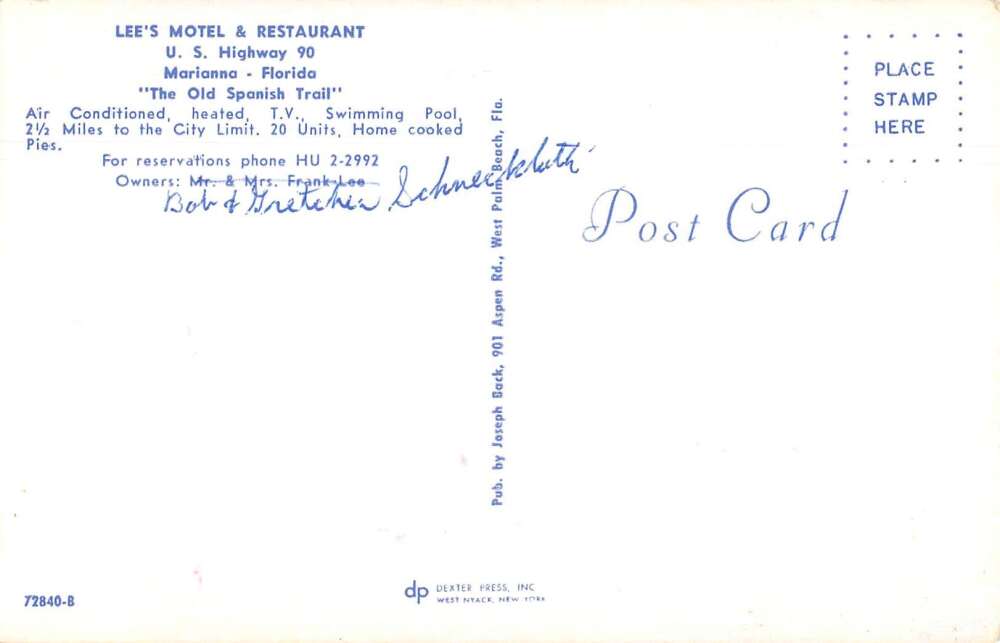 LEE'S MOTEL & RESTAURANT
U. S. Highway 90
Marianna - Florida
"The Old Spanish Trail"
Air Conditioned, heated, T.V., Swimming Pool,
2½ Miles to the City Limit. 20 Units, Home cooked
Pies.
For reservations phone HU 2-2992
Owners: Mr. & Mrs. Frank Lee
Bob & Gretchen Schneckloth
Pub. by Joseph Back, 901 Aspen Rd., West Palm Beach, Fla.
PLACE
STAMP
HERE
Post Card
72840-B
dp DEXTER PRESS, INC
WEST NYACK, NEW YORK